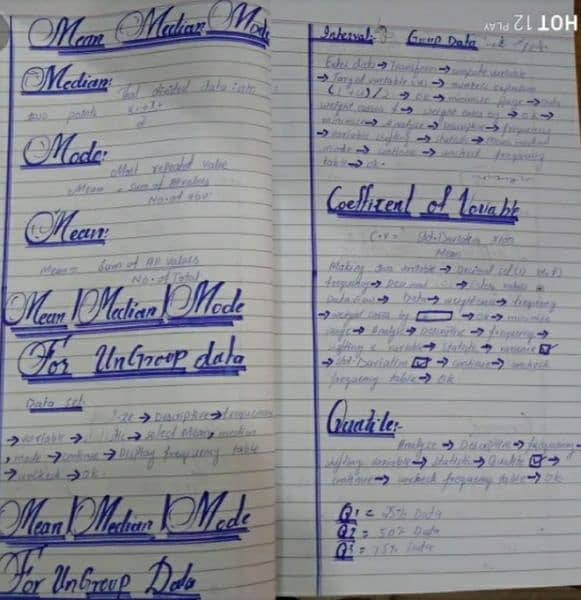 Mean Median Mode
Median:
that divided data into
two points
2
Mode:
Most repeated value
Mean = Sum of All values
No. of
Mean:
Mean = Sum of All values
No. of Total
Mean | Median | Mode
For UnGroup data
Data set
→ Descriptive → frequencies
→ variable → → select Mean, median
, mode → continue → Display frequency table
→ uncheck → OK.
Mean | Median | Mode
For UnGroup Data
HOT 12 PLAY
Interval: Group Data
Enter data → Transform → compute variable
→ Target variable (x) → numeric expression
(L + U) / 2 → OK → minimize → Data
weight cases → weight cases by → OK →
minimize → Analyze → Descriptive → frequency
→ variable shifting → statistic → mean median
mode → continue → uncheck frequency
table → OK.
Coeffizent of Variable
C.V = Std. Deviation x100
Mean
Making two variable → Decimal
frequency → Decimal → Enter value
Data View → Data → weight cases → frequency
→ weight cases by → OK → minimize
→ Analyze → Descriptive → frequency →
shifting x variable → Statistic → variance
→ Std. Deviation → continue → uncheck
frequency table → OK
Quartile:-
Analyze → Descriptive → frequency →
shifting variable → statistic → Quartile →
continue → uncheck frequency table → OK
Q1 = 25% Data
Q2 = 50% Data
Q3 = 75% Data